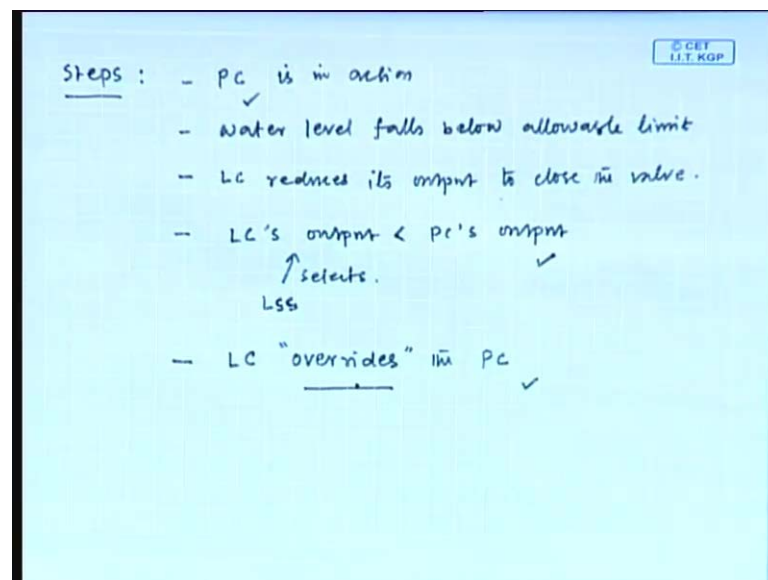 © CET
I.I.T. KGP
Steps : - PC is in action
- water level falls below allowable limit
- LC reduces its output to close the valve.
- LC's output < PC's output
selects.
LSS
- LC "overrides" the PC